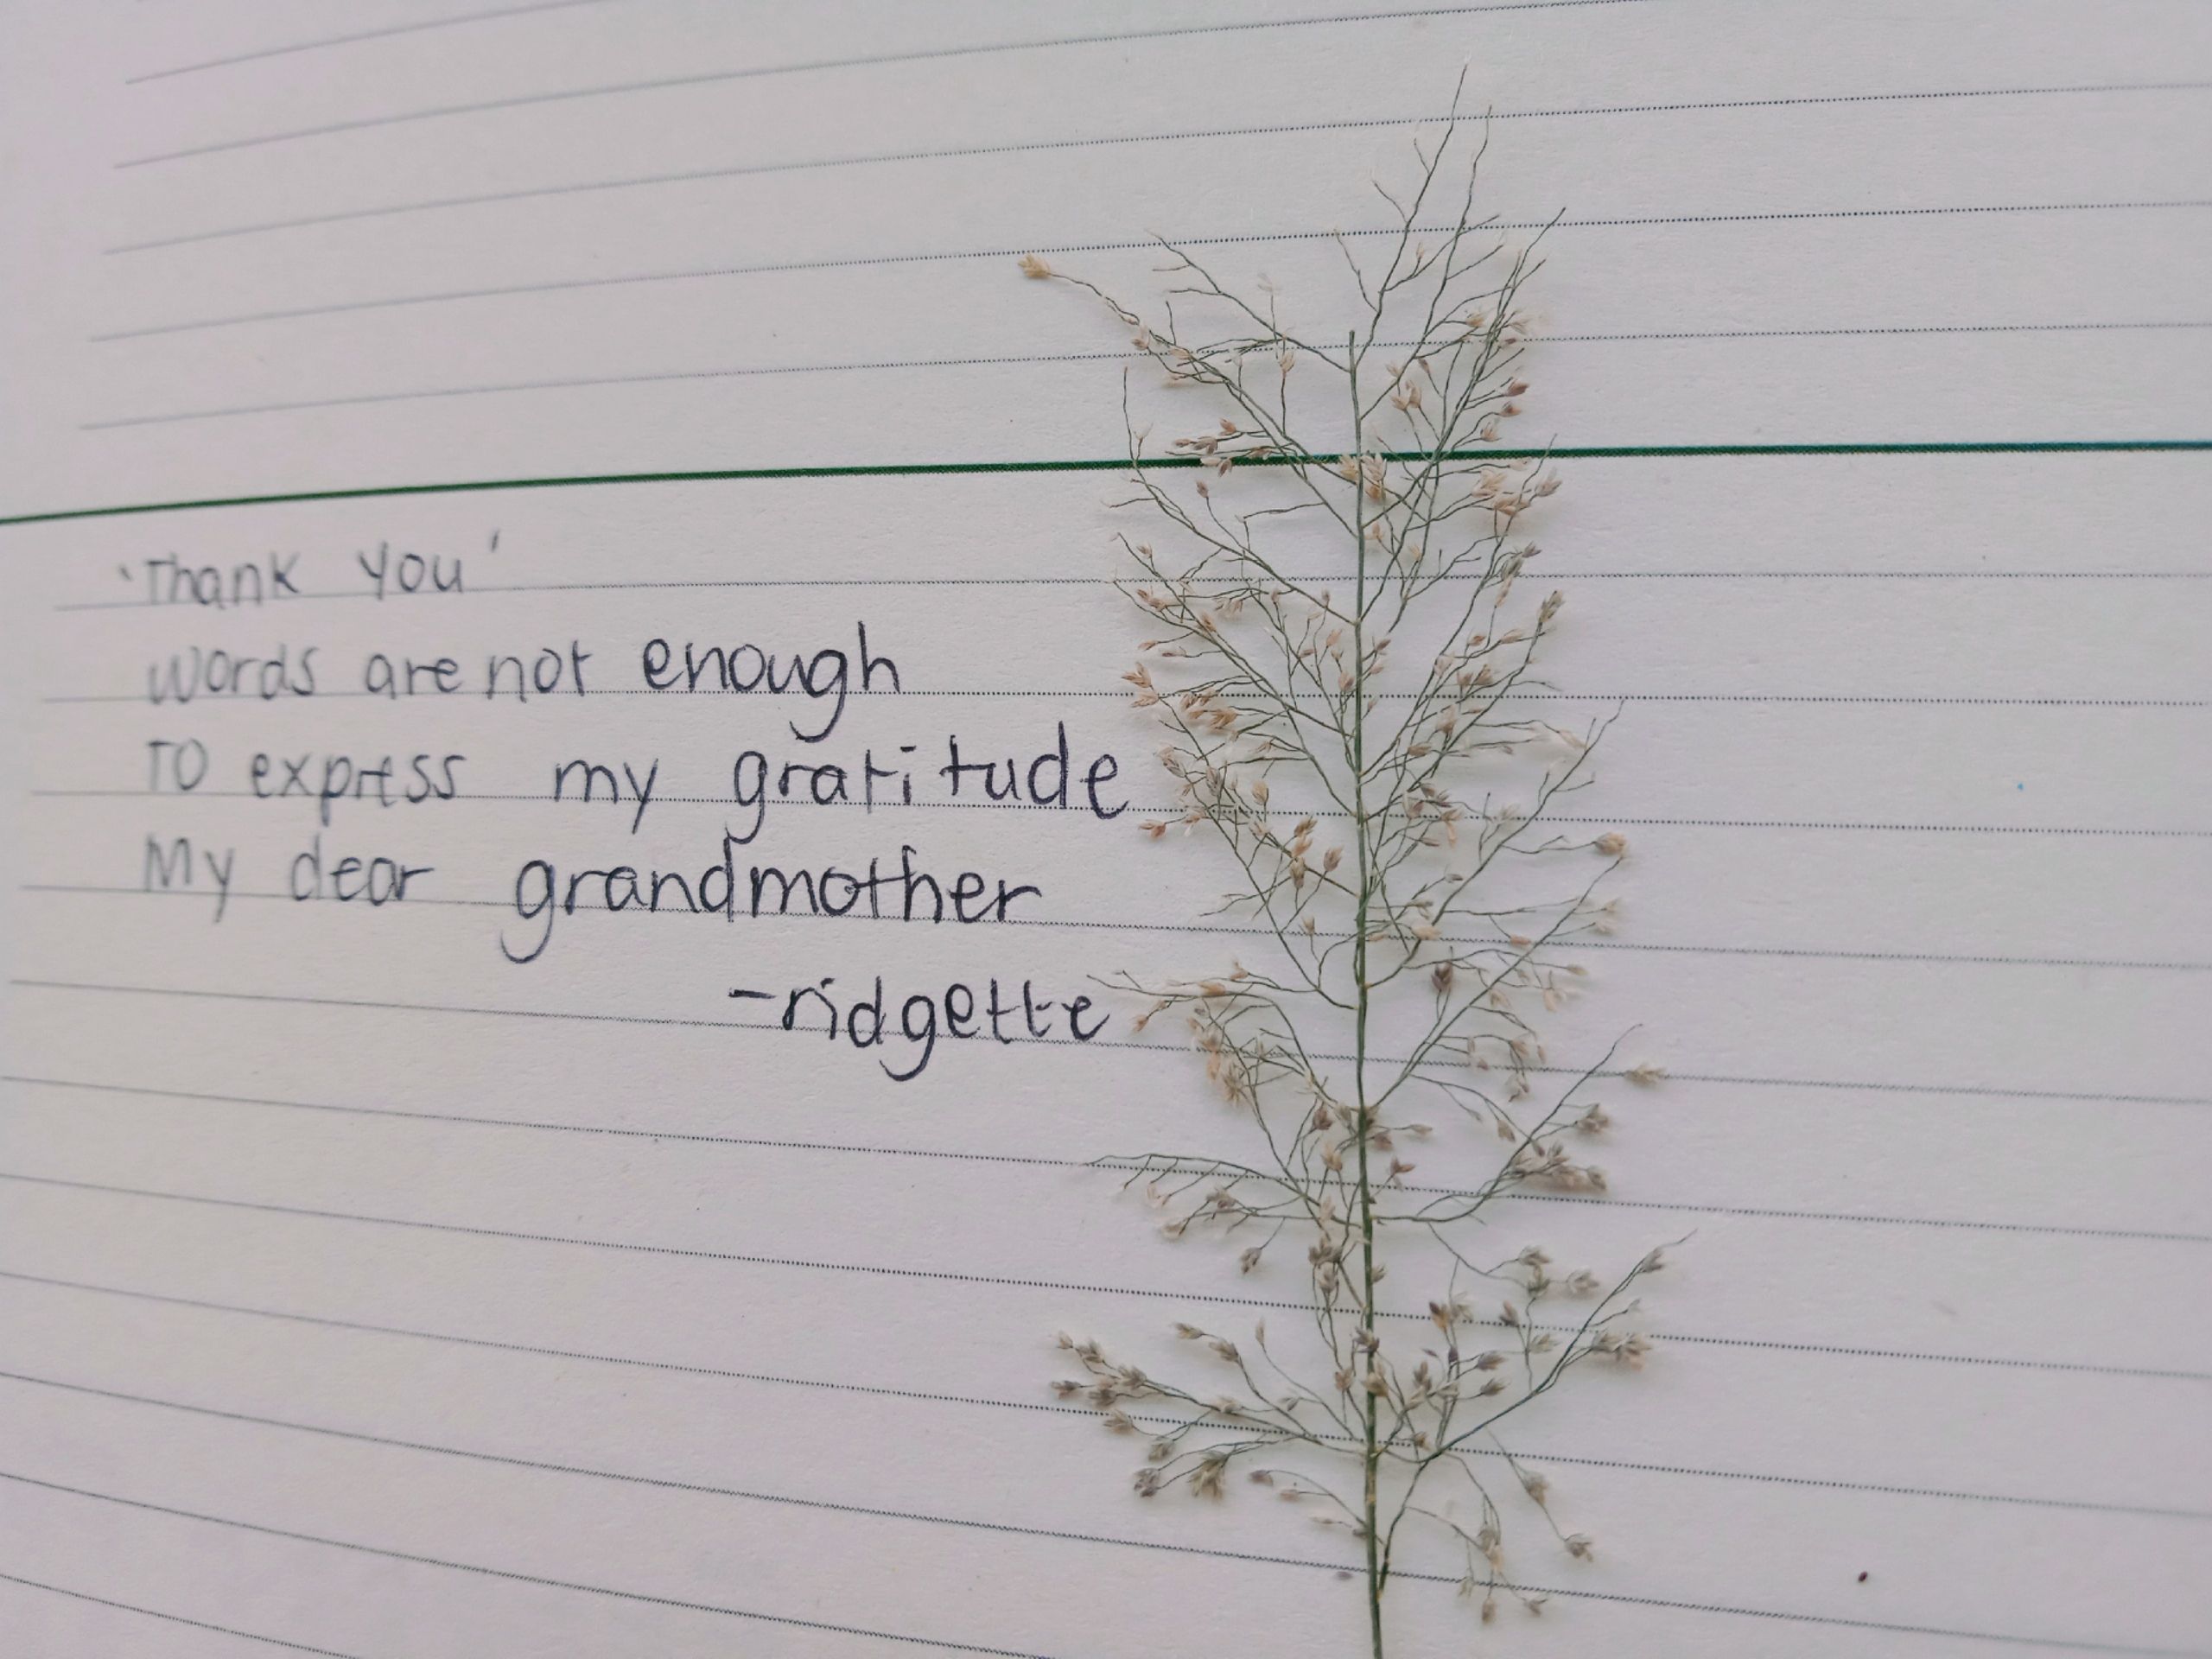 'Thank You'
words are not enough
To express my gratitude
My dear grandmother
-ridgette